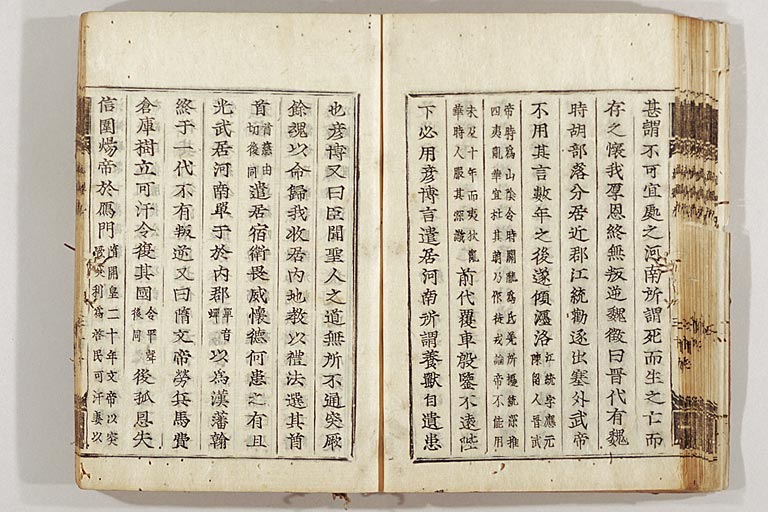 甚謂不可宜處之河南所謂死而生之亡而
存之懷我厚恩終無叛逆魏徵曰晉代有魏
時胡部落分居近郡江統勸逐出塞外武帝
不用其言數年之後遂傾瀍洛江統字應元陳留人晉武
帝時爲山陰令時關隴爲氐羌所擾統深推
四夷亂華宜杜其萌乃作徙戎論帝不能用
未及十年而夷狄亂華時人服其深識前代覆車殷鑒不遠陛
下必用彦博言遣居河南所謂養獸自遺患
也彦博又曰臣聞聖人之道無所不通突厥
餘魂以命歸我收居內地教以禮法選其酋
首酋慈由切後同遣居宿衛畏威懷德何患之有且
光武居河南單于於內郡單音蟬以爲漢藩翰
終于一代不有叛逆又曰隋文帝勞兵馬費
倉庫樹立可汗令復其國令平聲後同後孤恩失
信圍煬帝於鴈門隋開皇二十年文帝以突厥突利爲啓民可汗妻以